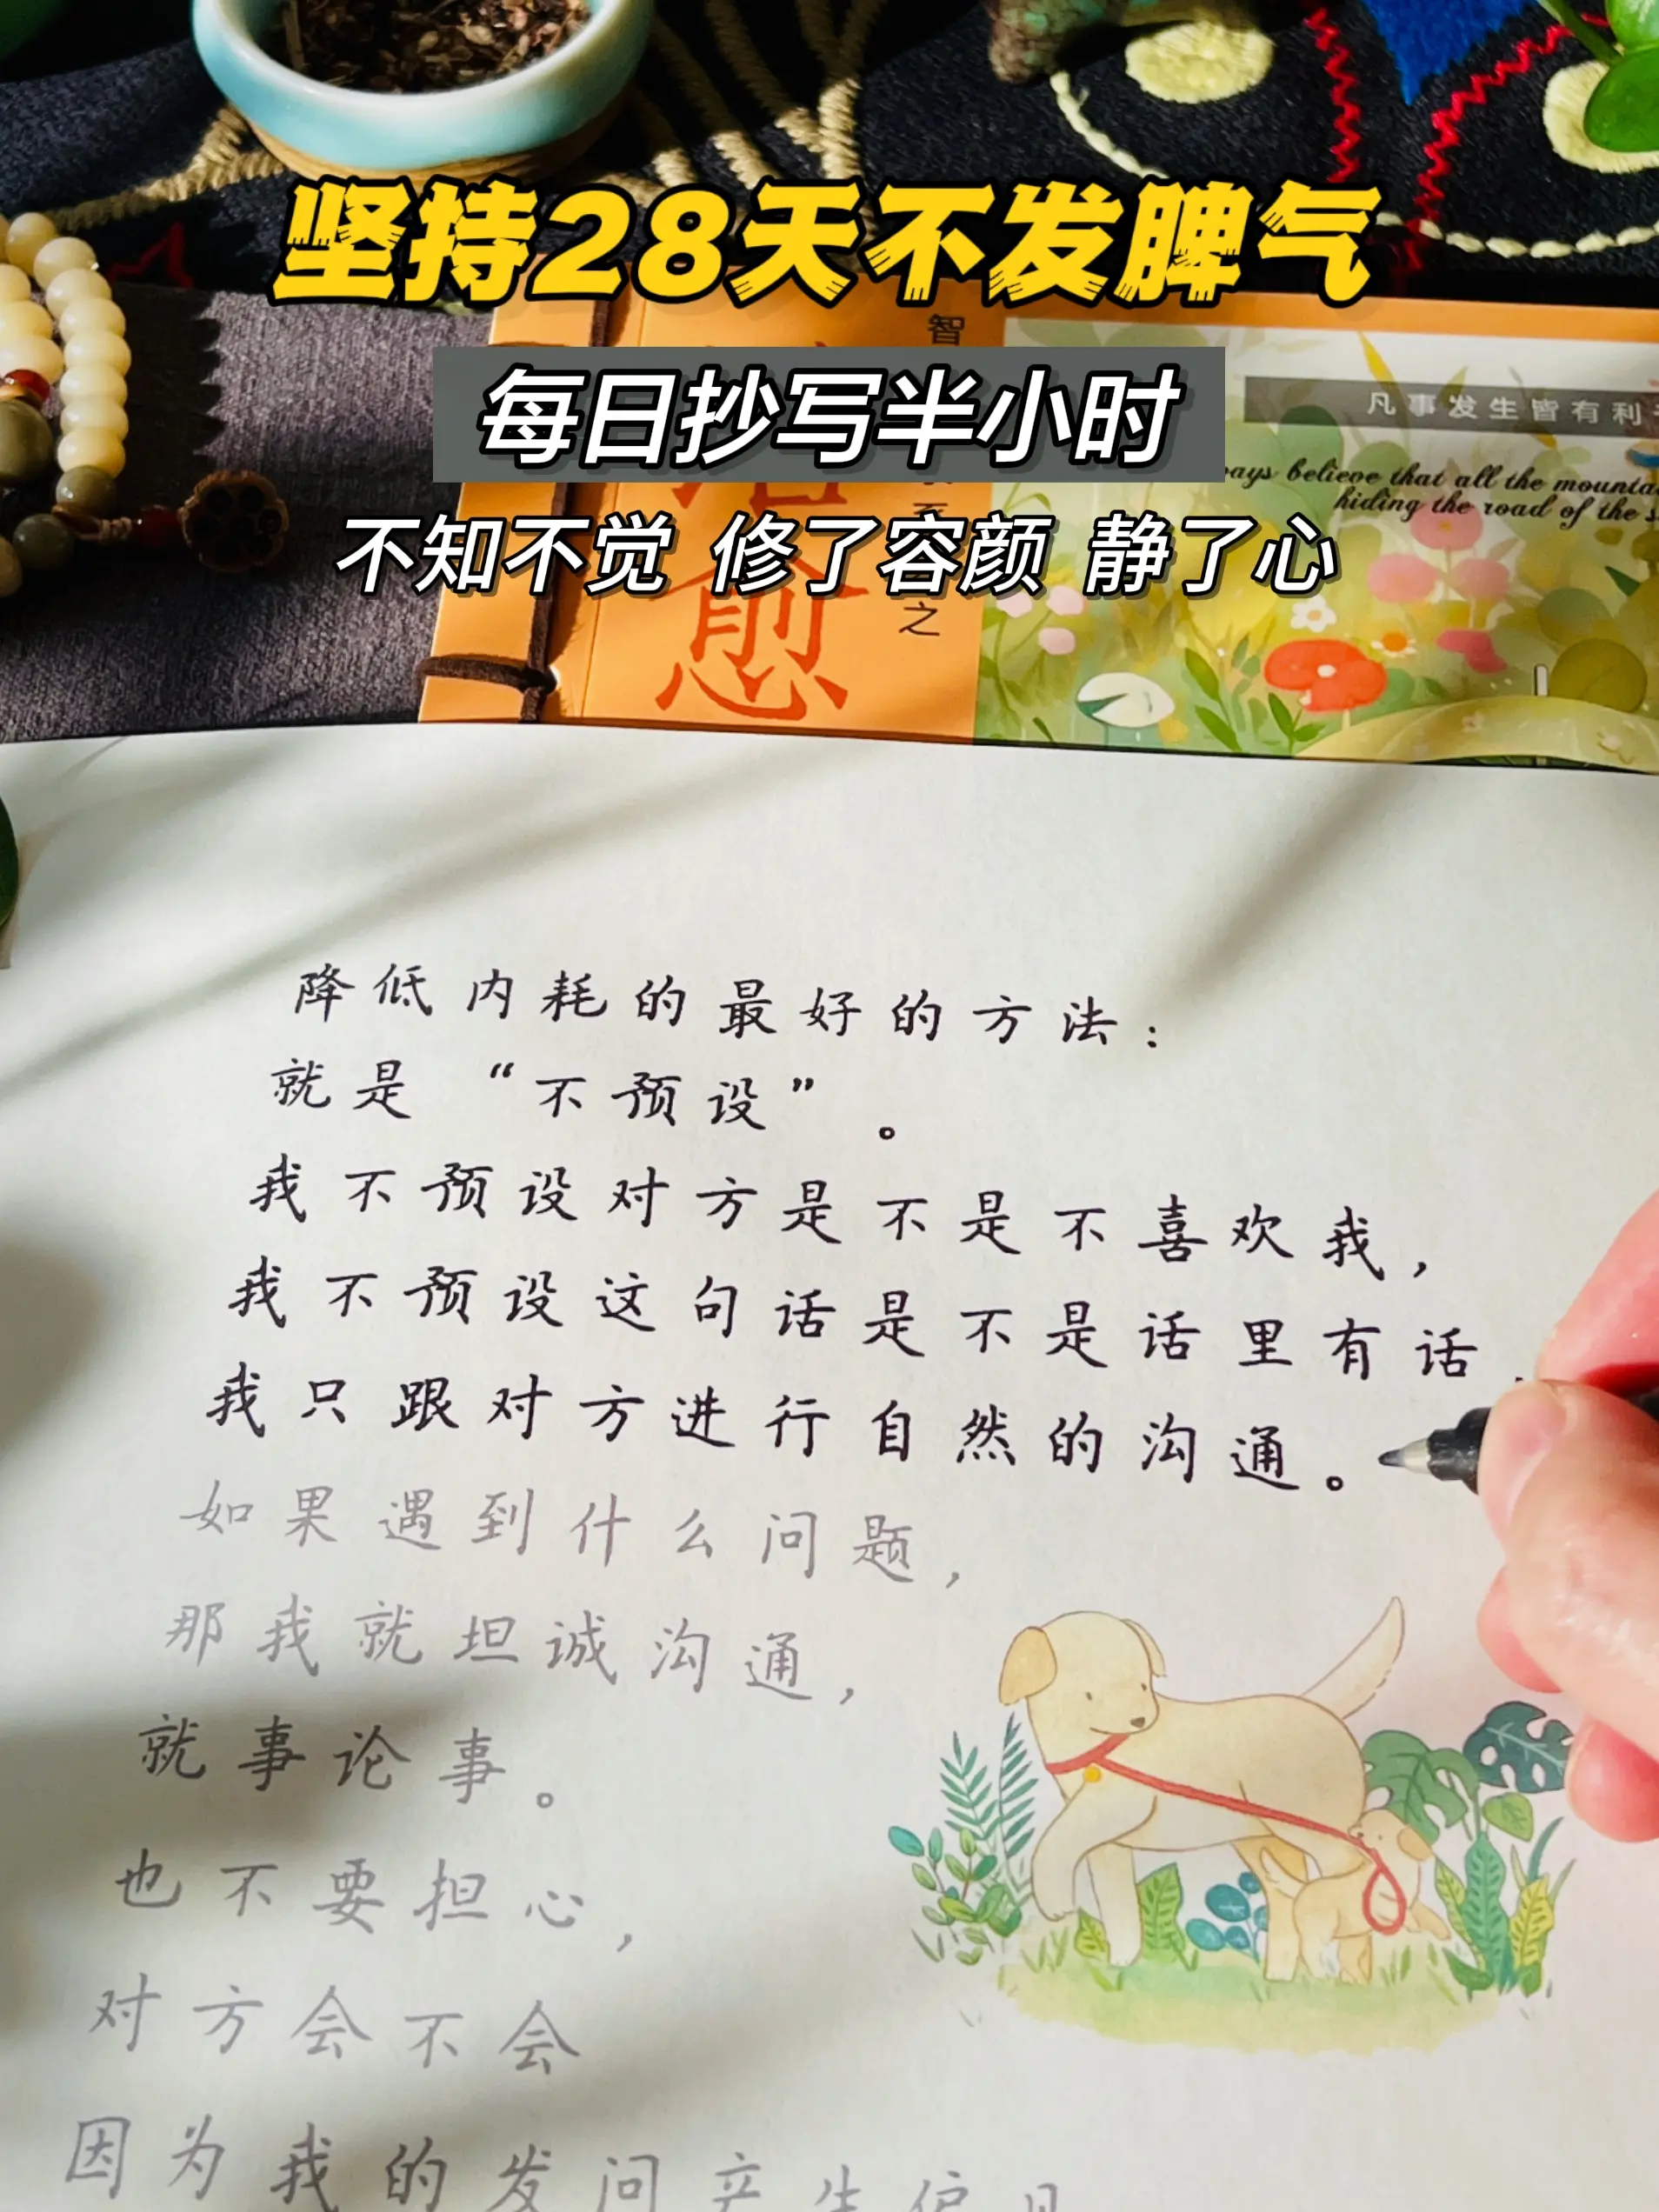 坚持28天不发脾气
每日抄写半小时
不知不觉 修了容颜 静了心
智
愈
之
凡事发生皆有利
believe that all the
hiding the road of the
降低内耗的最好的方法：
就是“不预设”。
我不预设对方是不是不喜欢我，
我不预设这句话是不是话里有话，
我只跟对方进行自然的沟通。
如果遇到什么问题，
那我就坦诚沟通，
就事论事。
也不要担心，
对方会不会
因为我的发问产生偏见